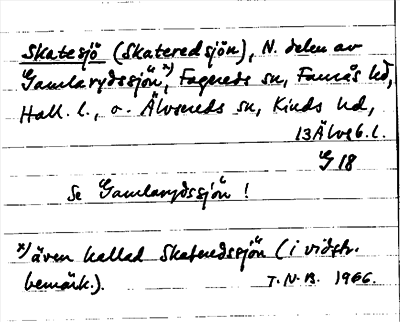 Skatesjö (Skateredsjön), N. delen av
Gamlarydssjön x), Fagereds sn, Faurås hd,
Hall. l., o. Älvsereds sn, Kinds hd,
Älvsb. l.
G 18
Se Gamlarydssjön !
x) även kallad Skateredssjön (i vidstr.
bemärk.). T.N.B. 1966.